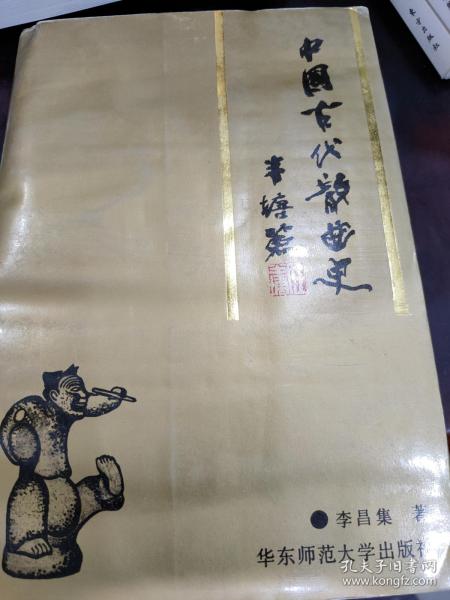 东方出版社
中国古代散曲史
●李昌集 著
华东师范大学出版社
孔夫子旧书网
www.kongfz.com